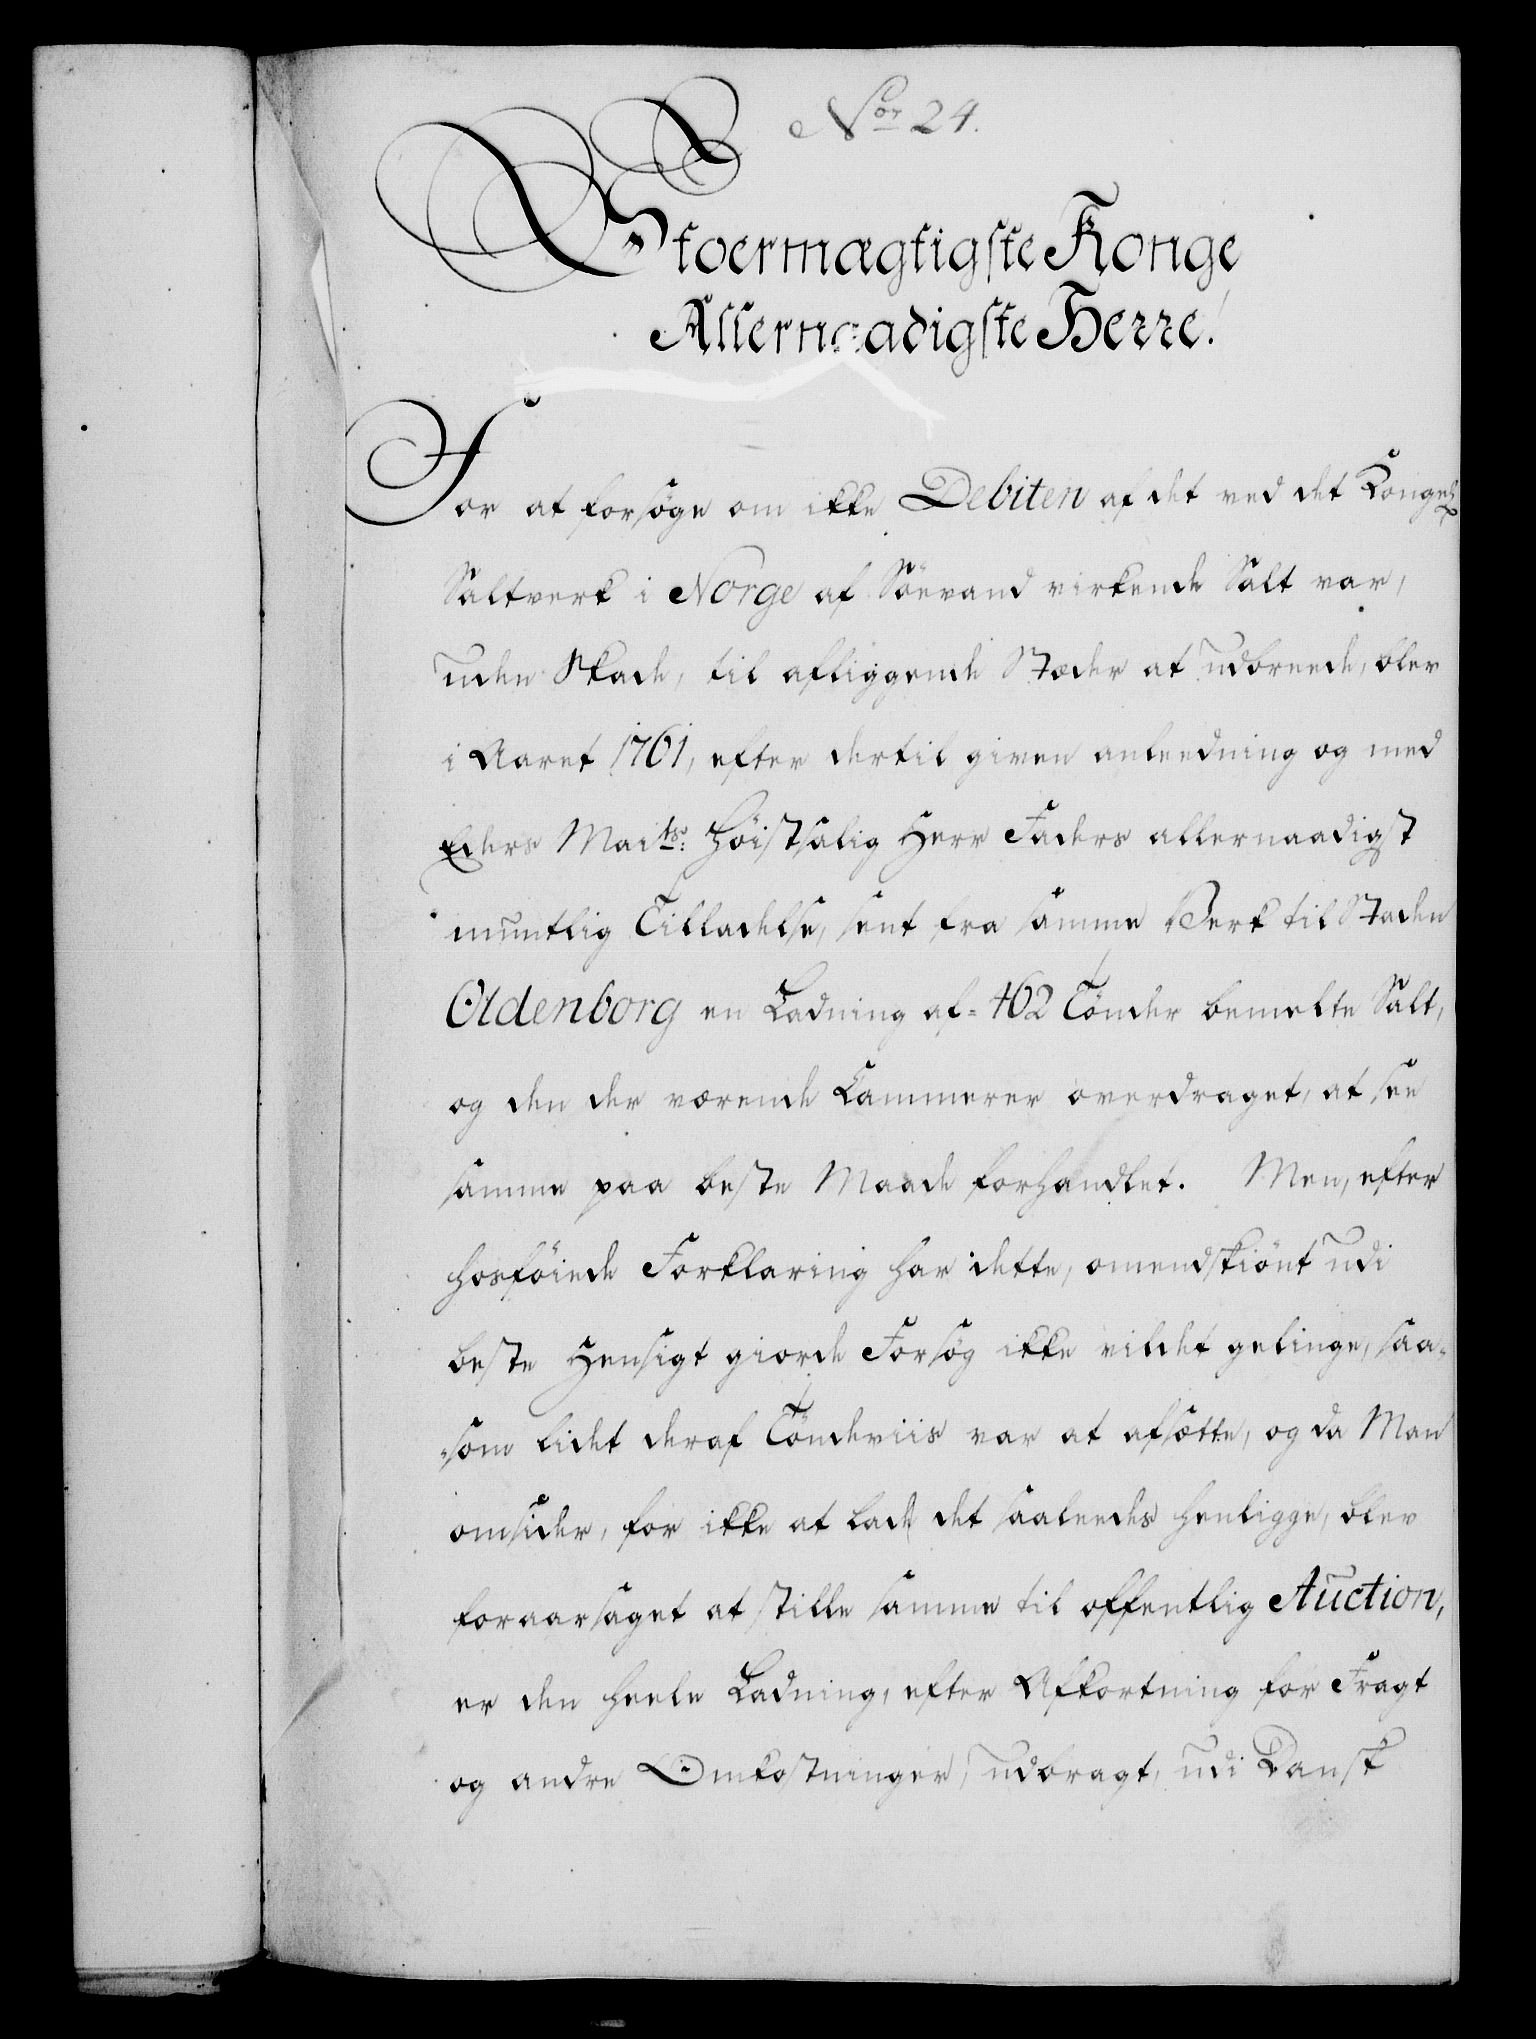 Nor 24.
Stoermægtigste Konge
Allernaadigste Herre!
For at forsöge om ikke Debiten af det ved det Kongel:
Saltverk i Norge af Söevand virkende Salt var,
uden Skade, til afliggende Stæder at udbreede, blev
i Aaret 1761, efter dertil given anleedning og med
Eders Maits: Höistsalig Herr Faders allernaadigst
muntlig Tilladelse, sent fra samme Verk til Staden
Oldenborg en Ladning af = 462 Tönder bemelte Salt,
og den der værende Cammerer overdraget, at see
samme paa beste Maade forhandlet. Men, efter
hosföiede Forklaring har dette, omendskiönt udi
beste Hensigt giorde Forsög ikke vildet gelinge, saa-
som lidet deraf Töndeviis var at afsætte, og da Man
omsider, for ikke at lade det saaleedes henligge, blev
foraarsaget at stille samme til offentlig Auction,
er den heele Ladning, efter Afkortning for Fragt
og andre Omkostninger, udbragt, udi Dansk